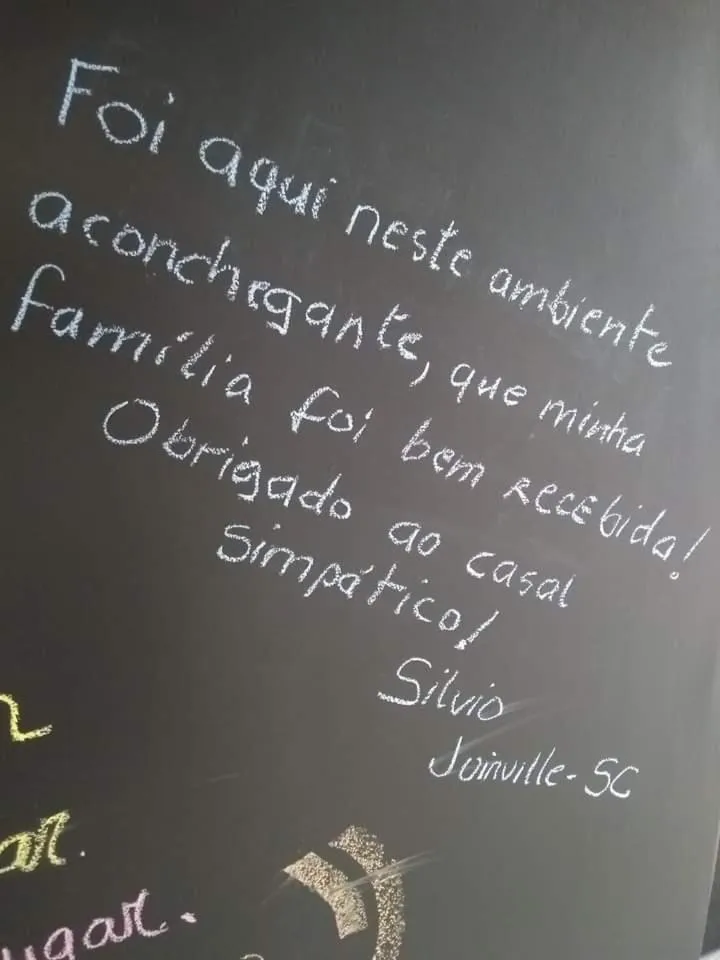 Foi aqui neste ambiente
aconchegante, que minha
família foi bem RECEbida!
Obrigado ao casal
Simpático!
Silvio
Joinville-SC